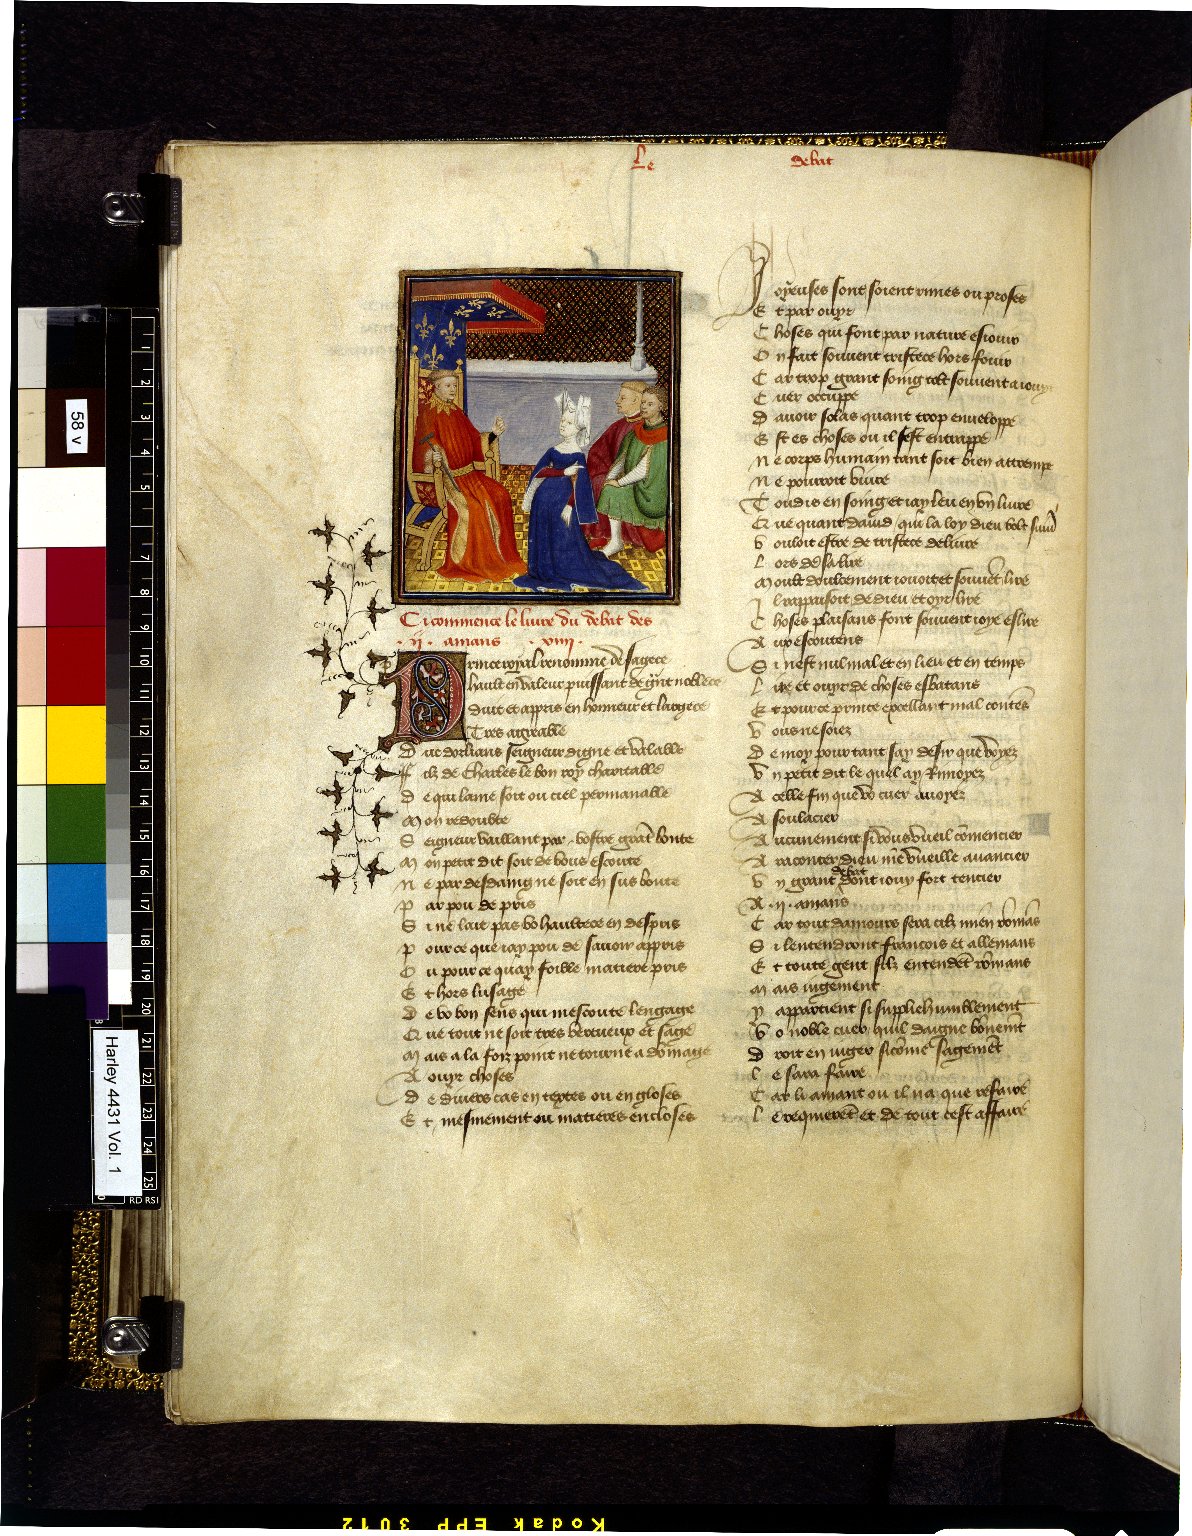 Le debat
Ci commence le livre du debat des
.ij. amans .viiij.
Prince royal renomme de sagece
hault en valeur puissant de grant noblece
duit et appris en honneur et largece
Tres agreable
Duc dorlians seigneur digne et valable
filz de Charles le bon roy charitable
De qui lame soit ou ciel permanable
Mon redoubte
Seigneur vaillant par vostre grant bonte
Mon petit dit soit de vous escoute
Ne par desdaing ne soit en sus boute
Par pou de pris
Si ne lait pas vo haultece en despris
Pour ce que jay pou de savoir appris
Ou pour ce quay foible matiere pris
Et hors lusage
De vo bon sens qui mescoute lengage
Que tout ne soit tres vertueux et sage
Mais a la foiz point ne tourne a domage
A ouyr choses
De divers cas en textes ou en gloses
Et mesmement ou matieres encloses
Joyeuses sont soient rimes ou proses
Et par ouyr
Choses qui font par nature esjouir
On fait souvent tristece hors fouir
Car trop grant soing tolt souvent a jouyr
Cuer occuppe
Davoir solas quant trop enveloppe
Est es choses ou il sest entrappe
Ne corps humain tant soit bien attrempe
Ne pourroit vivre
Toudis en soing et jay leu en un livre
Que quant david qui la loy dieu volt suivre
Vouloit estre de tristece delivre
Lors de sa lire
Moult doulcement jouoit et souvent lire
Il rappaisoit de dieu et oyr lire
Choses plaisans font souvent joye eslire
Aux escoutens
Si nest nul mal et en lieu et en temps
Lire et ouyr de choses esbatans
Et pour ce prince excellant mal contens
Vous ne soiez
De moy pour tant say desir que voyez
Un petit dit le quel ay rimoyez
A celle fin que vo cuer avoyez
A soulacier
Aucunement si vous vueil comencier
A raconter dieu me vueille avancier
Un grant debat dont jouy fort tencier
A .ij. amans
Car tout damours sera cilz miens romans
Si lentendront francois et allemans
Et toute gent silz entendent romans
Mais jugement
Y appartient si supplie humblement
Vo noble cuer quil daigne bonement
Droit en juger si come sagement
Le sara faire
Car li amant ou il na que refaire
Le requierent et de tout cest affaire
58 v
Harley 4431 Vol. 1
RD RSI
Kodak EPP 3012